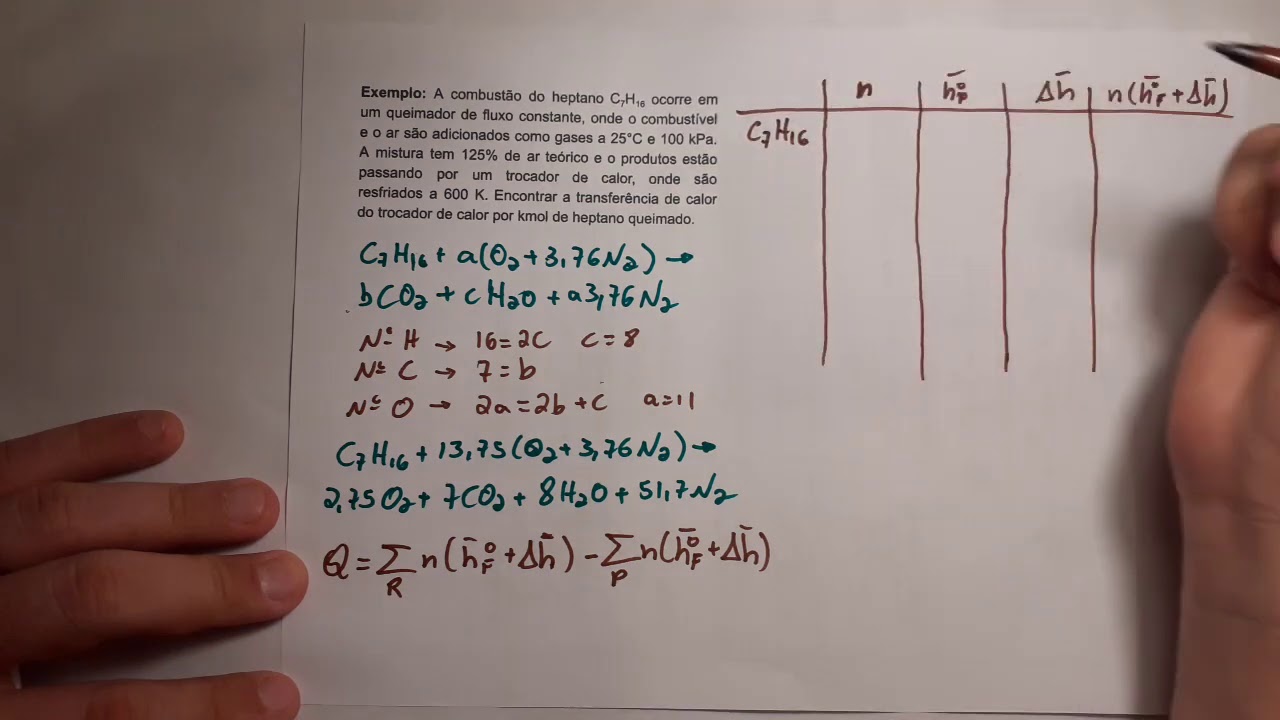 Exemplo: A combustão do heptano C₇H₁₆ ocorre em
um queimador de fluxo constante, onde o combustível
e o ar são adicionados como gases a 25°C e 100 kPa.
A mistura tem 125% de ar teórico e o produtos estão
passando por um trocador de calor, onde são
resfriados a 600 K. Encontrar a transferência de calor
do trocador de calor por kmol de heptano queimado.
C₇H₁₆ + a(O₂ + 3,76N₂) →
bCO₂ + cH₂O + a3,76N₂
Nº H → 16=2C c=8
Nº C → 7=b
Nº O → 2a=2b+c a=11
C₇H₁₆ + 13,75(O₂ + 3,76N₂) →
2,75O₂ + 7CO₂ + 8H₂O + 51,7N₂
Q = Σ_R n(h̄°_F + Δh̄) - Σ_P n(h̄°_F + Δh̄)
n h̄°_F Δh̄ n(h̄°_F + Δh̄)
C₇H₁₆